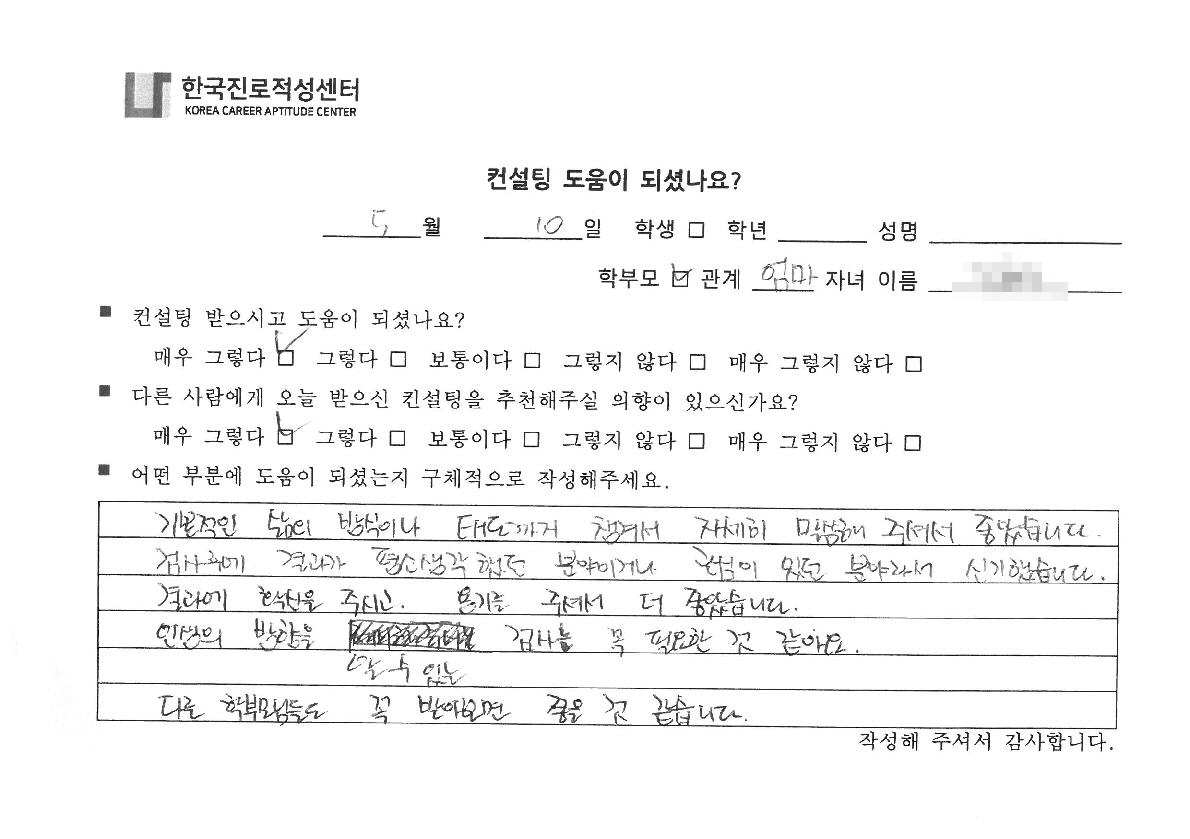 한국진로적성센터
KOREA CAREER APTITUDE CENTER
컨설팅 도움이 되셨나요?
5월 10일 학생 □ 학년 성명
학부모 ☑ 관계 엄마 자녀 이름
■ 컨설팅 받으시고 도움이 되셨나요?
매우 그렇다 ☑ 그렇다 □ 보통이다 □ 그렇지 않다 □ 매우 그렇지 않다 □
■ 다른 사람에게 오늘 받으신 컨설팅을 추천해주실 의향이 있으신가요?
매우 그렇다 ☑ 그렇다 □ 보통이다 □ 그렇지 않다 □ 매우 그렇지 않다 □
■ 어떤 부분에 도움이 되셨는지 구체적으로 작성해주세요.
기본적인 삶의 방식이나 태도까지 챙겨서 자세히 말씀해 주셔서 좋았습니다.
검사후에 결과가 평소생각했던 분야이거나 관심이 있던 분야라서 신기했습니다.
결과에 확신을 주시고. 용기를 주셔서 더 좋았습니다.
인생의 방향을 검사를 꼭 필요한 것 같아요.
알 수 있는
다른 학부모님들도 꼭 받아보면 좋을 것 같습니다.
작성해 주셔서 감사합니다.